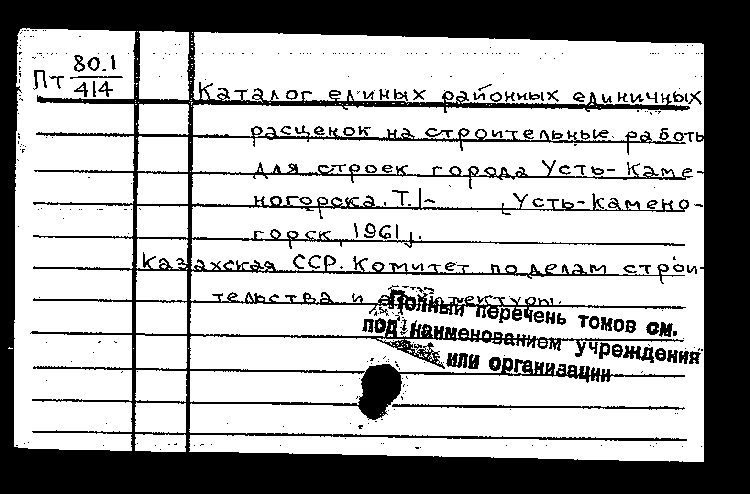 Пт 80.1
414
Каталог единых районных единичных
расценок на строительные работы
для строек города Усть-Каме-
ногорска. Т.1- [Усть-Камено-
горск, 1961].
Казахская ССР. Комитет по делам строи-
тельства и архитектуры.
Полный перечень томов см.
под наименованием учреждения
или организации